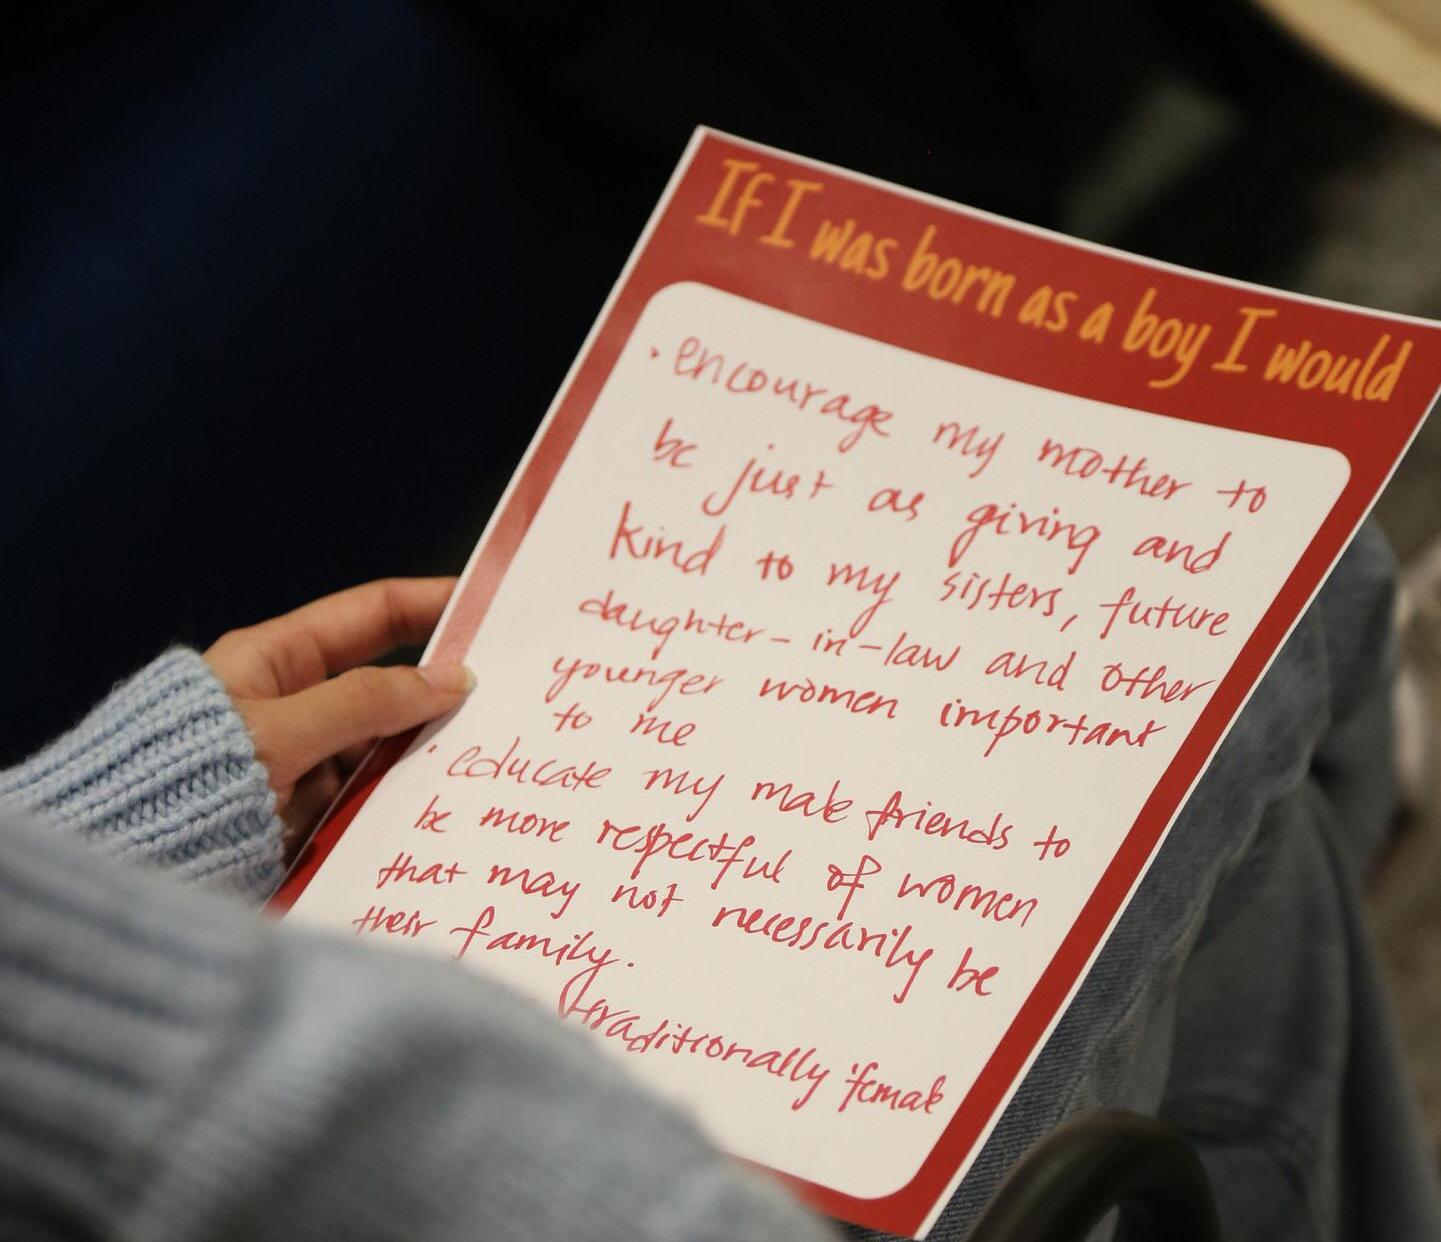 If I was born as a boy I would
· encourage my mother to
be just as giving and
kind to my sisters, future
daughter-in-law and other
younger women important
to me
· educate my male friends to
be more respectful of women
that may not necessarily be
their family.
traditionally 'female